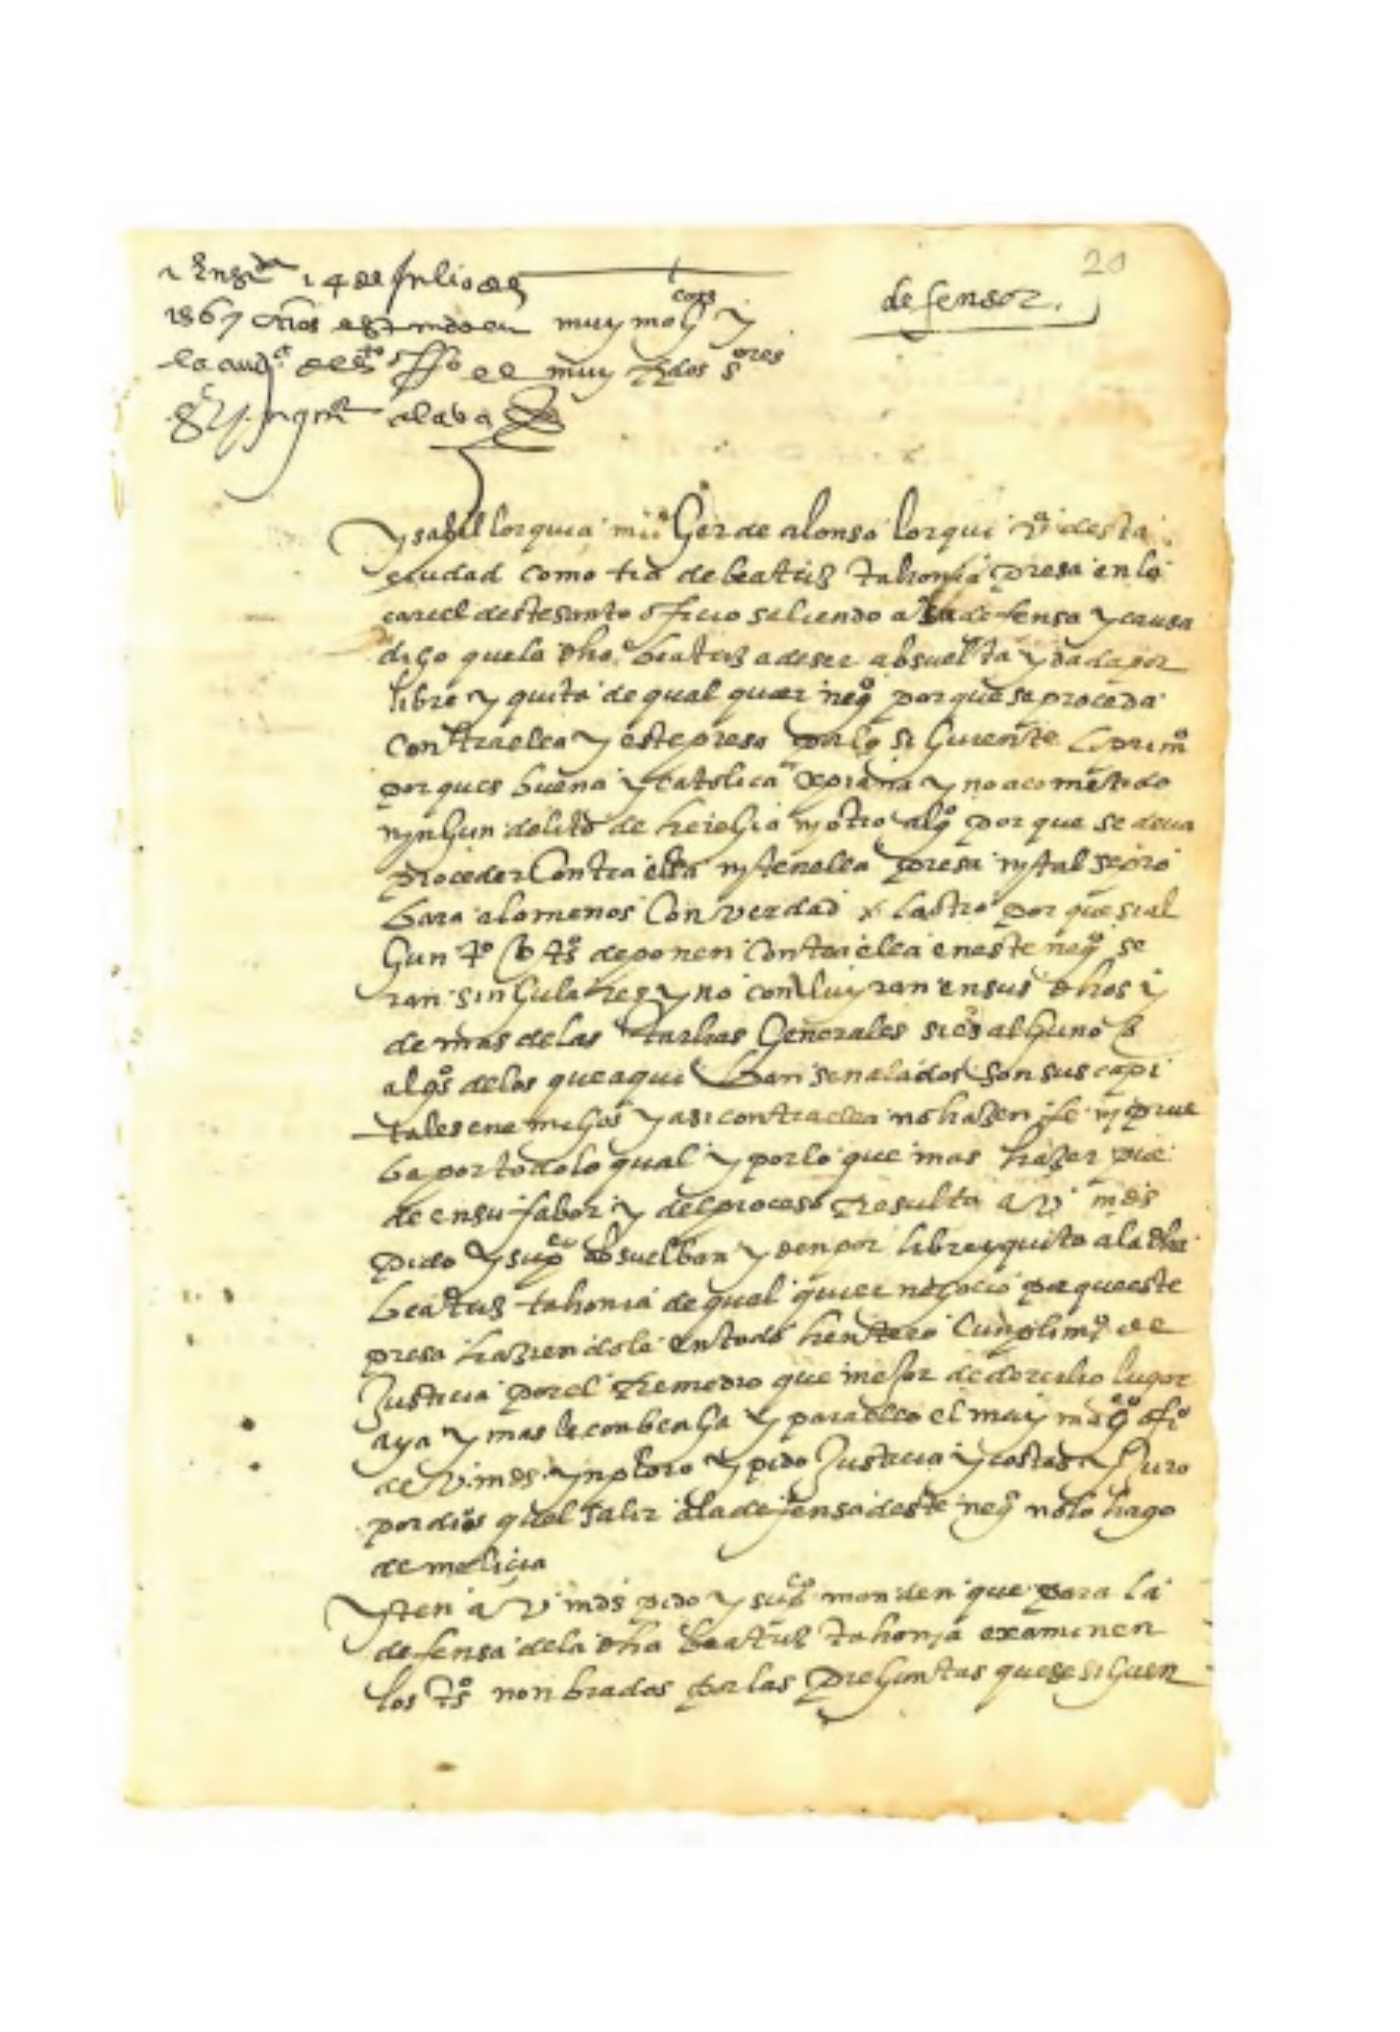 20
defensor.
En gr.da 14 de Julio de
1567 años estando en muy mag.cos y
la aud.a del s.to off.o el muy Rdos s.ores
alava
ysabel lorquia muger de alonso lorqui v.o desta
ciudad como tia de beatriz tahonia presa en la
carcel deste santo oficio saliendo a su defensa y causa
digo que la dha beatriz a de ser absuelta y dada por
libre y quita de qual quier neg.o porque se proceda
contra ella y este presa por lo siguiente lo prim.o
por ques buena y catolica xpiana y no a cometido
ningun delito de heregia ni otro alg.o por que se deva
proceder contra ella ni tenella presa ni tal se pro
bara a lo menos con verdad por que si al
gun t.o o t.os deponen contra ella en este neg.o se
ran singulares y no concluyran en sus dhos y
de mas de las tachas generales si es alguno o
alg.os de los que aqui ban senalados son sus capi
tales enemigos y asi contra ella no hazen fe ni prue
ba por todo lo qual y por lo que mas hazer pue
de en su fabor y del proceso Resulta a v. mds
pido y sup.co absuelban y den por libre y quita a la dha
beatriz tahonia de qual quier negocio por que este
presa haziendole en todo hentero cunplim.o de
Justicia por el Remedio que mejor de derecho lugar
aya y mas le conbenga y para ello el muy mag.co ofi.o
de v. mds. ynploro y pido Justicia y costas y Juro
por dios quel salir a la defensa deste neg.o no lo hago
de malicia
yten a v. mds pido y sup.co manden que para la
defensa de la dha beatriz tahonia examinen
los t.os nonbrados por las preguntas que se siguen